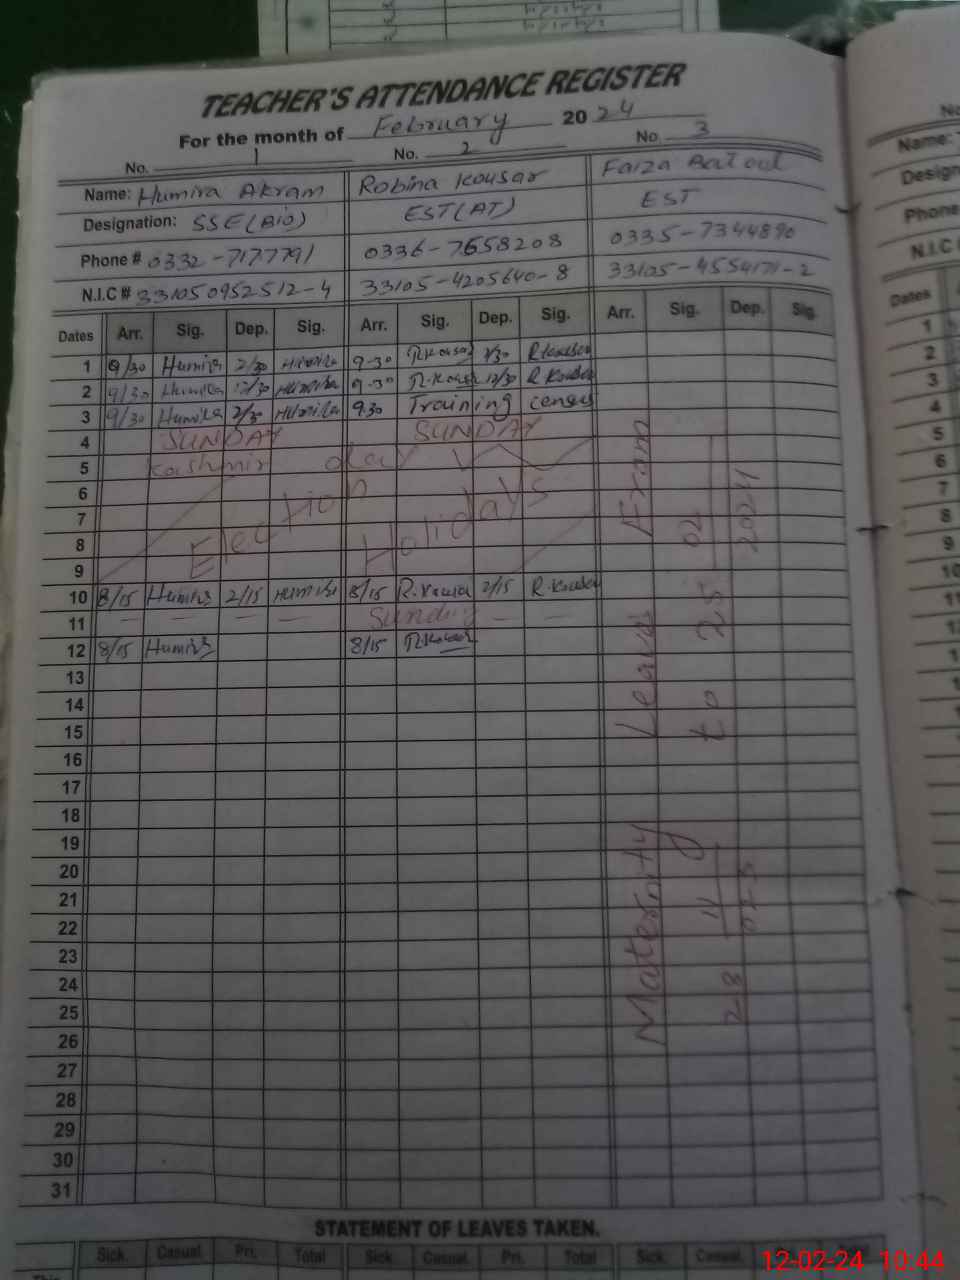 TEACHER'S ATTENDANCE REGISTER
For the month of February 2024
No. 1 No. 2 No. 3
Name: Humira Akram Robina Kousar Faiza Batool
Designation: SSE(Bio) EST(AT) EST
Phone # 0332-7177791 0336-7658208 0335-7344890
N.I.C # 331050952512-4 33105-4205640-8 33105-4554171-2
Dates Arr. Sig. Dep. Sig. Arr. Sig. Dep. Sig. Arr. Sig. Dep. Sig.
1 9/30 Humira 2/30 Humira 9-30 R.Kousar 2/30 R.Kousar
2 9/30 Humira 12/30 Humira 9-30 R.Kousar 12/30 R.Kousar
3 9/30 Humira 2/30 Humira 9.30 Training census
4 SUNDAY SUNDAY
5 Kashmir day
6
7 Election Holidays
8
9
10 8/15 Humira 2/15 Humira 8/15 R.Kousar 2/15 R.Kousar
11 — — — — Sunday — —
12 8/15 Humira 8/15 R.Kousar
13
14
15
16
17
18
19
20
21
22
23
24
25
26
27
28
29
30
31
Maternity Leave From
28 11 to 25 02 2024
STATEMENT OF LEAVES TAKEN.
Sick. Casual. Pri. Total Sick. Casual. Pri. Total Sick. Casual.
This
No
Name:
Design
Phone
N.I.C
Dates
1
2
3
4
5
6
7
8
9
10
12-02-24 10:44